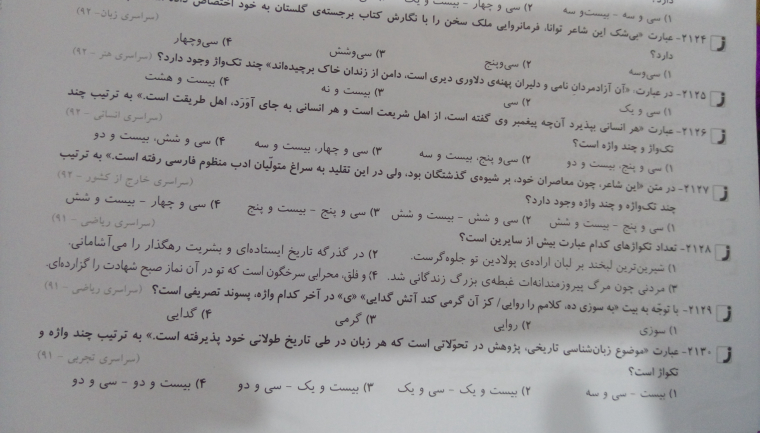 دارد؟
۱) سی و سه - بیست‌و سه ۲) سی و چهار - بیست و یک
(سراسری زبان-۹۲)
۲۱۲۴- عبارت «بی‌شک این شاعر توانا، فرمانروایی ملک سخن را با نگارش کتاب برجسته‌ی گلستان به خود اختصاص
دارد؟
۱) سی‌وسه ۲) سی‌وپنج ۳) سی‌وشش ۴) سی‌وچهار
۲۱۲۵- در عبارت، «آن آزادمردان نامی و دلیران پهنه‌ی دلاوری دیری است، دامن از زندان خاک برچیده‌اند» چند تک‌واژ وجود دارد؟ (سراسری هنر - ۹۲)
۱) سی و یک ۲) سی ۳) بیست و نه ۴) بیست و هشت
۲۱۲۶- عبارت «هر انسانی بپذیرد آن‌چه پیغمبر وی گفته است، از اهل شریعت است و هر انسانی به جای آوَرَد، اهل طریقت است.» به ترتیب چند
تک‌واژ و چند واژه است؟ (سراسری انسانی - ۹۲)
۱) سی و پنج، بیست و دو ۲) سی‌و پنج، بیست و سه ۳) سی و چهار، بیست و سه ۴) سی و شش، بیست و دو
۲۱۲۷- در متن «این شاعر، چون معاصران خود، بر شیوه‌ی گذشتگان بود، ولی در این تقلید به سراغ متولّیان ادب منظوم فارسی رفته است.» به ترتیب
چند تک‌واژ و چند واژه وجود دارد؟ (سراسری خارج از کشور - ۹۲)
۱) سی و پنج - بیست و شش ۲) سی و شش - بیست و شش ۳) سی و پنج - بیست و پنج ۴) سی و چهار - بیست و شش
۲۱۲۸- تعداد تکواژهای کدام عبارت بیش از سایرین است؟ (سراسری ریاضی - ۹۱)
۱) شیرین‌ترین لبخند بر لبان اراده‌ی پولادین تو جلوه‌گرست. ۲) در گذرگه تاریخ ایستاده‌ای و بشریت رهگذار را می‌آشامانی.
۳) مردنی چون مرگ پیروزمندانه‌ات غبطه‌ی بزرگ زندگانی شد. ۴) و فلق، محرابی سرخگون است که تو در آن نماز صبح شهادت را گزارده‌ای.
۲۱۲۹- با توجّه به بیت «به سوزی ده، کلامم را روایی/ کز آن گرمی کند آتش گدایی» «ی» در آخر کدام واژه، پسوند تصریفی است؟ (سراسری ریاضی - ۹۱)
۱) سوزی ۲) روایی ۳) گرمی ۴) گدایی
۲۱۳۰- عبارت «موضوع زبان‌شناسی تاریخی، پژوهش در تحوّلاتی است که هر زبان در طی تاریخ طولانی خود پذیرفته است.» به ترتیب چند واژه و
تکواژ است؟ (سراسری تجربی - ۹۱)
۱) بیست - سی و سه ۲) بیست و یک - سی و یک ۳) بیست و یک - سی و دو ۴) بیست و دو - سی و دو